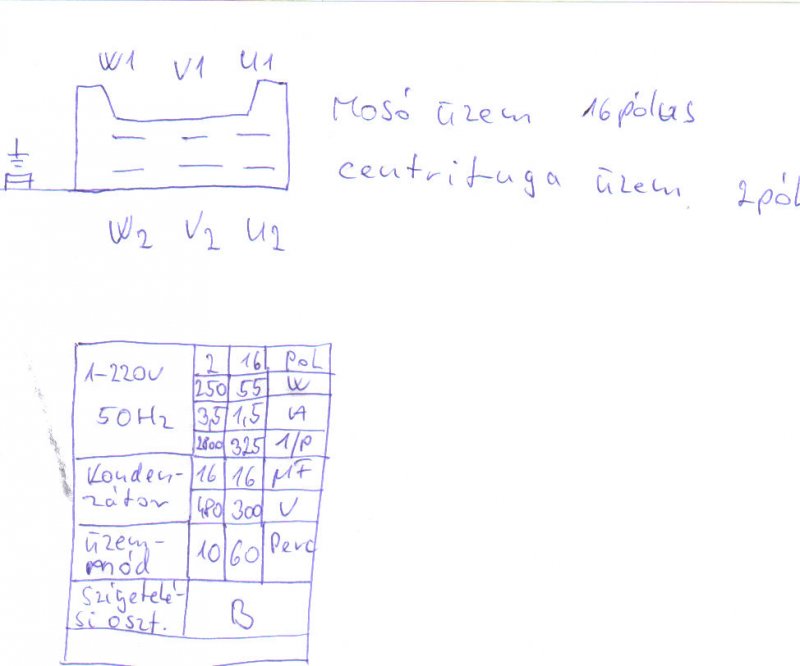 W1 V1 U1
Mosó üzem 16pólus
centrifuga üzem. 2pól
W2 V2 U2
1-220V 2 16 POL
250 55 W
50Hz 3,5 1,5 A
2800 325 1/P
Konden- 16 16 µF
zátor 480 300 V
üzem- 10 60 Perc
mód
Szigetelé- B
si oszt.